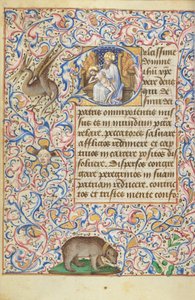 Dulcissime
domine
ihu xpe
vere deus
qui de
sinu dei
patris omnipotentis mis
sus es in mundum
relaxare. peccatores saluare
afflictos redimere et cap
tiuos in carcere positos
soluere. Dispersos congre
gare peregrinos in suam
patriam reducere. contri
tos et tristes mente conso